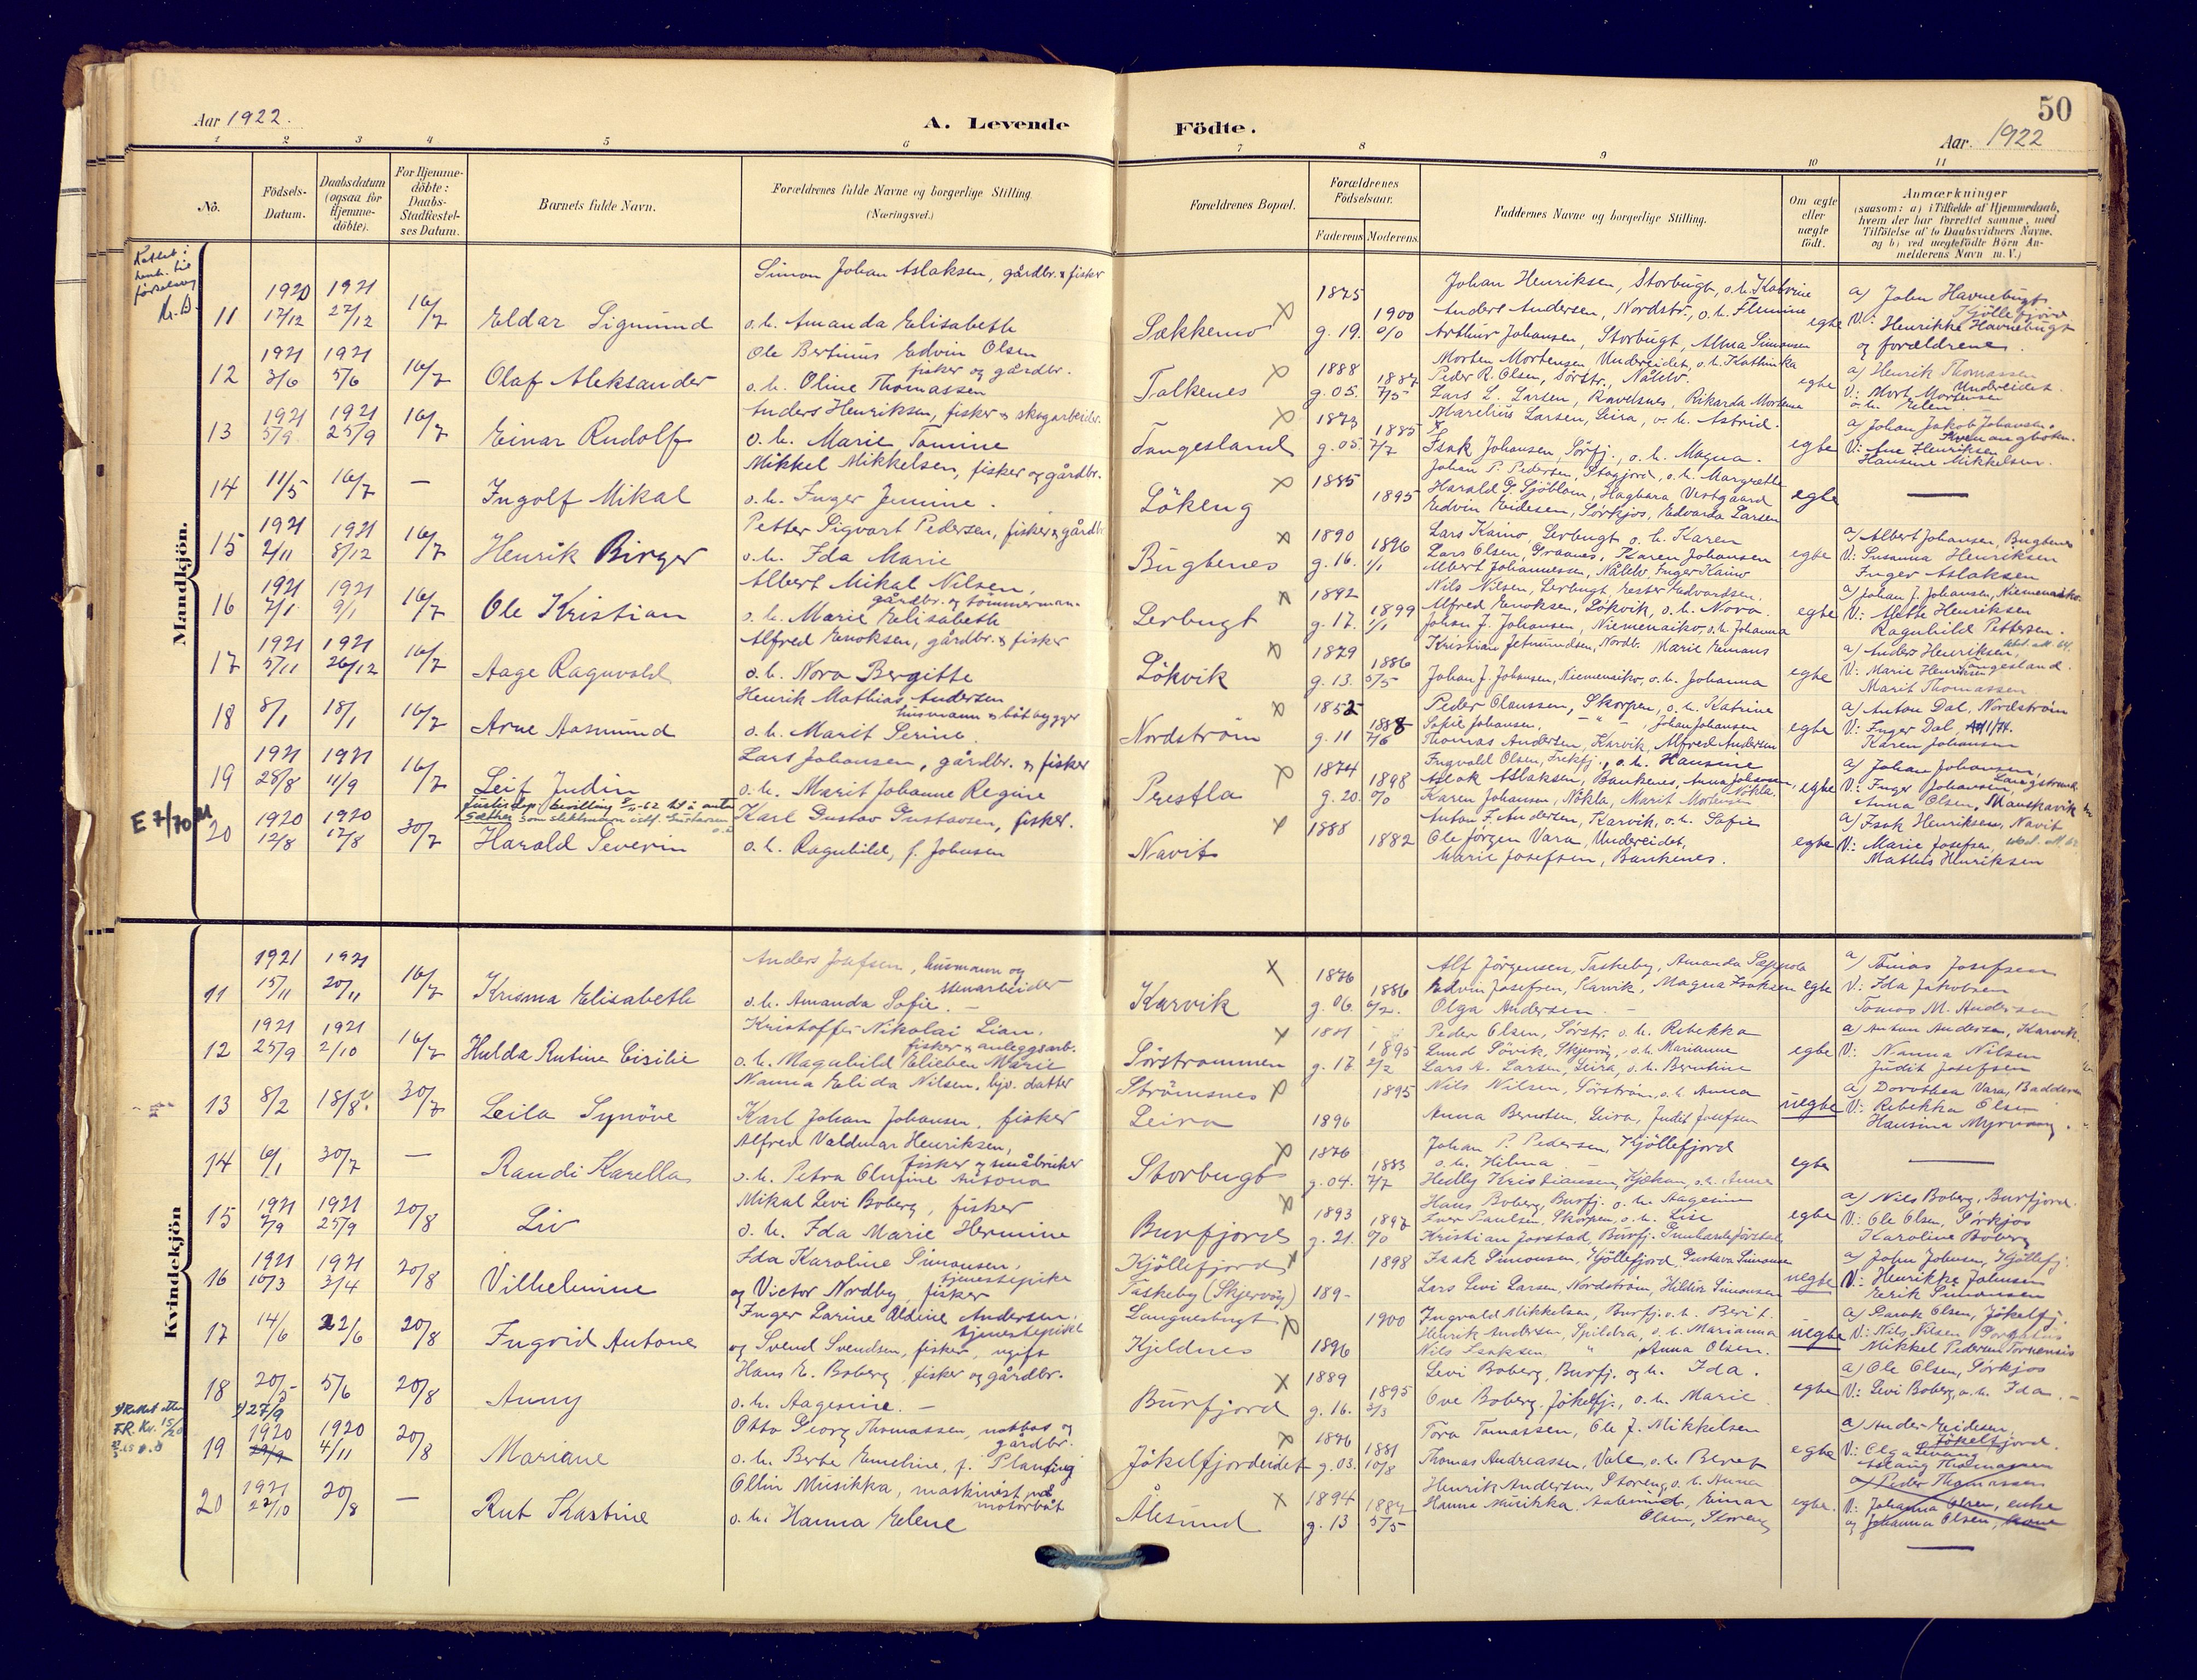 50
Aar 1922.
A. Levende
Födte.
Aar. 1922
1 2 3 4 5 6 7 8 9 10 11
No.
Födsels-
Datum.
Daabsdatum
(ogsaa for
Hjemme-
döbte).
For Hjemme-
döbte:
Daabs-
Stadfæstel-
ses Datum.
Barnets fulde Navn.
Forældrenes fulde Navne og borgerlige Stilling
(Næringsvei.)
Forældrenes Bopæl.
Forældrenes
Födselsaar.
Faderens Moderens.
Faddernes Navne og borgerlige Stilling.
Om ægte
eller
uægte
født.
Anmærkninger
(saasom: a) i Tilfælde af Hjemmedaab,
hvem der har forrettet samme, med
Tilföielse af to Daabsvidners Navne.
og b) ved uægtefödte Börn An-
melderens Navn m. V.)
Mandkjön.
11 1920 17/12 1921 27/12 16/7 Eldar Sigmund
Simon Johan Aslaksen, gårdbr. & fisker
o. h. Amanda Elisabeth
1875 1900
g. 19.
Johan Henriksen, Storbugt, o. h. Katrine
Anders Andersen, Nordstr., o. h. Flemine
Arthur Johansen, Storbugt, Alma Simonsen
egte
a) John Havnebugt
Kjöllefjord
V: Henrikke Havnebugt
og forældrene.
12 1921 3/6 1921 5/6 16/7 Olaf Aleksander
Ole Bertinus Edvin Olsen
fisker og gårdbr.
o. h. Oline Thomassen
Talkenes
1888 1887
g. 05. 7/5
Morten Mortensen Undereidet, o. h. Kathinka
Peder R. Olsen, Sörstr., Nålelv.
Lars L. Larsen, Ravelsnes, Rikarda Mortensen
egte
a) Henrik Thomassen
Undereidet.
V: Mort. Mortensen
o. h. Elen.
13 1921 5/9 1921 25/9 16/7 Einar Rudolf
Anders Henriksen, fisker & skogarbeider
o. h. Marie Tomine
Tangesland
1873 1885
g. 05. 7/7
Marelius Larsen, Leira, o. h. Astrid.
Isak Johansen, Sörfj., o. h. Magna.
egte
a) Johan Jakob Johansen.
V: Ane Henriksen
Hansine Mikkelsen.
14 11/5 16/7 — Ingolf Mikal
Mikkel Mikkelsen, fisker og gårdbr.
o. h. Inger Jemine.
Lökeng
1885 1895
Johan P. Pedersen, Stagjord, o. h. Margrethe
Harald G. Sjöblom, Hagbara Vestgaard
Edvin Eidesen, Sörkjos, Edvarda Larsen
egte
—
15 1921 2/11 1921 8/12 16/7 Henrik Birger
Petter Sigvart Pedersen, fisker & gårdbr
o. h. Ida Marie
Bugtenes
1890 1896
g. 16. 1/1
Lars Kaino, Lerbugt o. h. Karen
Lars Olsen, Graanes, Karen Johansen
Albert Johannesen, Nålelv Inger Kaino
egte
a) Albert Johansen, Bugtenes
V: Susanna Henriksen
Inger Aslaksen
16 1921 7/1 1921 9/1 16/7 Ole Kristian
Albert Mikal Nilsen,
gårdbr. og tömmerman.
o. h. Marie Elisabeth
Lerbugt
1892 1899
g. 17. 1/1
Nils Nilsen, Lerbugt, Ester Edvardsen.
Alfred Enoksen, Lökvik, o. h. Nora.
Johan J. Johansen, Niemenaiko, o. h. Johanna
egte
a) Johan J. Johansen, Niemenaiko.
V: Agethe Henriksen
Ragnhild Pettersen.
17 1921 5/11 1921 26/12 16/7 Aage Ragnvald
Alfred Enoksen, gårdbr. & fisker
o. h. Nora Bergitte
Lökvik
1879 1886
g. 13. 5/5
Kristian Jetmundsen, Nordb. Marie Emaus
Johan J. Johansen, Niemenaiko, o. h. Johanna
egte
a) Anders Henriksen,
Tangesland.
V: Marie Henriksen
Marit Thomassen
18 8/1 18/1 16/7 Arne Aasmund
Henrik Mathias Andersen
husmann & båtbygger
o. h. Marit Serine.
Nordström
1852 1888
g. 11 7/6
Peder Olaussen, Skorpen, o. h. Katrine
Sofie Johansen, — " — , Johan Johansen
Thomas Andersen, Karvik, Alfred Andersen
egte
a) Anton Dal, Nordström
V: Inger Dal,
Karen Johansen
19 1921 28/8 1921 11/9 16/7 Leif Judin
Lars Johansen, gårdbr. & fisker
o. h. Marit Johanne Regine
1874 1898
g. 20.
Ingvald Olsen, Frekfj., o. h. Hansine
Aslak Aslaksen, Bankenes, Anna Johansen,
Karen Johansen, Nökla, Marit Mortensen
egte
a) Johan Johansen,
Langstrand
V: Inger Johansen,
Anna Olsen, Mauskarvik
E 7/70
20 1920 12/8 1920 17/8 30/7 Harald Severin
Karl Gustav Gustavsen, fisker.
o. h. Ragnhild, f. Johnsen
Navit
1888 1882
Anton F. Andersen, Karvik, o. h. Sofie
Ole Jörgen Vara, Undereidet,
Marie Josefsen, Bankenes.
egte
a) Isak Henriksen, Navit
V: Marie Josefsen,
Mathis Henriksen
Kvindekjön
11 1921 15/11 1921 20/11 16/7 Krisma Elisabeth
Anders Josefsen, husmann og
stenarbeider
o. h. Amanda Sofie. —
Karvik
1876 1886
g. 06.
Alf Jörgensen, Taskeby, Amanda Sæppola
Edvin Josefsen, Karvik, Magna Isaksen
Olga Andersen. —
egte
a) Tomas Josefsen
V: Ida Jakobsen
Tomas M. Andersen
12 1921 25/9 1921 2/10 16/7 Hulda Rutine Cisilie
Kristoffer Nikolai Lian,
fisker & anleggsarb.
o. h. Magnhild Elieben Marie
Sörstrammen
1895
g. 17. 2/2
Peder Olsen, Sörstr. o. h. Rebekka
Lund Sövik, Skjervöy, o. h. Marianne
Lars A. Larsen, Leira, o. h. Berntine
egte
a) Anton Andersen, Karvik.
V: Nanna Nilsen
Judit Josefsen
13 8/2 18/8 30/7 Leila Synöve
Nanna Elida Nilsen, hjv. datter
Karl Johan Johansen, fisker
Strömsnes
Leira
1896 1895
Nils Nilsen, Sörström, o. h. Anna
Anna Berntsen, Leira, Judit Josefsen
uegte
a) Dorothea Vara, Badderen
V: Rebekka Olsen
Hansina Myrvang.
14 6/1 30/7 — Randi Karella
Alfred Valdmar Henriksen,
fisker og småbruker
o. h. Petra Olufine Antona
Storbugt
1876 1883
g. 04. 7/7
Johan P. Pedersen, Kjöllefjord
o. h. Hilma —
Hedly Kristiansen, Kjækan, o. h. Anna
egte
—
15 1921 7/9 1921 25/9 20/8 Liv
Mikal Levi Boberg, fisker
o. h. Ida Marie Hermine
Burfjord
1893 1897
g. 21.
Hans Boberg, Burfj. o. h. Aagesine
Iver Paulsen, Skorpen, o. h. Lise
Kristian Jorstad, Burfj.
egte
a) Nils Boberg, Burfjord.
V: Ole Olsen, Sörkjos
Karoline Boberg
16 1921 10/3 1921 3/4 20/8 Vilhelmine
Ida Karoline Simonsen,
tjenestepike
og Victor Nordby, fisker
Kjöllefjord
Taskeby (Skjervöy)
189- 1898
Isak Simonsen, Kjöllefjord, Gustava Simonsen
Lars Levi Larsen, Nordström, Hildur Simonsen
uegte
a) John Johnsen, Kjöllefj.
V: Henrikke Johnsen
Erik Simonsen
17 14/6 22/6 20/8 Ingrid Antone
Inger Larine Aldine Andersen,
tjenestepike
og Svend Svendsen, fisker, ugift
Langnesbugt
Kjeldnes
1896 1900
Ingvald Mikkelsen, Burfj. o. h. Berit.
Henrik Andersen, Spildra, o. h. Marianna
Nils Isaksen, " Anna Olsen.
uegte
a) Isarak Olsen, Jökelfj.
V: Nils Nilsen
Mikkel Pedersen
18 20/5 5/6 20/8 Anny
Hans E. Boberg, fisker og gårdbr.
o. h. Aagesine. —
Burfjord
1889 1895
g. 16. 3/3
Levi Boberg, Burfj. og h. Ida.
Ove Boberg, Jökelfj., o. h. Marie
egte
a) Ole Olsen, Sörkjos
V: Levi Boberg, o. h. Ida. —
19 27/9 1920 1920 4/11 20/8 Mariane
Otto Georg Thomassen, notbas og
gårdbr.
o. h. Berte Emeline, f. Planting
Jökelfjordeidet
1876 1881
g. 03. 10/8
Tora Tomassen, Ole J. Mikkelsen
Thomas Andreassen, Valen, o. h. Beret
egte
a) Anders Eidesen,
Jökelfjord.
V: Olga Levang
Aslaug Thomassen
20 1921 22/10 20/8 — Rut Kastine
Ollin Musikka, maskinist på
motorbåt
o. h. Hanna Elene
Ålesund
1894 1887
g. 13 5/5
Henrik Andersen, Storeng, o. h. Anna
Hanna Musikka, Einar
Olsen, Storeng
egte.
a) Peder Thomassen
V: Johanna Olsen, enke
og Johanna Olsen,
—